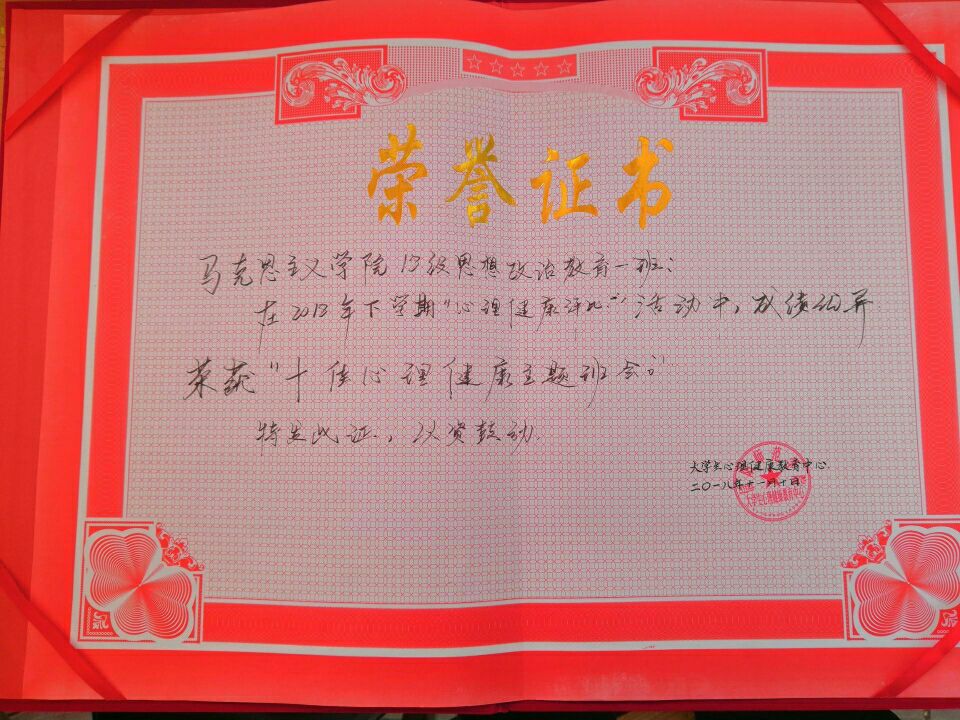 荣誉证书
马克思主义学院18级思想政治教育一班:
在2018年下学期"心理健康评比"活动中,成绩优异
荣获"十佳心理健康主题班会"
特发此证,以资鼓励.
大学生心理健康教育中心
二〇一八年十一月十日
大学生心理健康教育中心